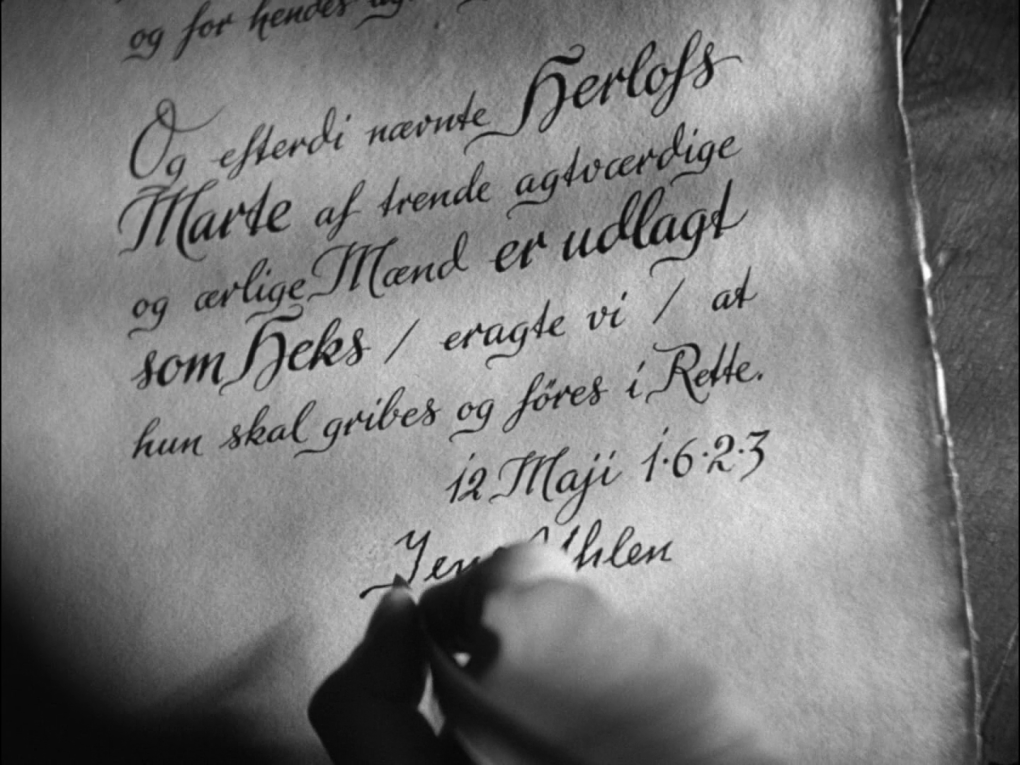 og for hendes
Og efterdi nævnte Herlofs
Marte af trende agtværdige
og ærlige Mænd er udlagt
som Heks / eragte vi / at
hun skal gribes og föres i Rette.
12 Maji 1·6·2·3